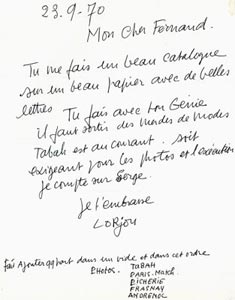 23.9.70
Mon Cher Fernand.
Tu me fais un beau catalogue
sur un beau papier avec de belles
lettres Tu fais avec ton Génie
il faut sortir des modes de modes
Tabah est au courant. soit
exigeant pour les photos et l'exécution
je compte sur Serge.
Je t'embrasse
LORJOU
fais ajouter apport dans un vide et dans cet ordre
Photos. TABAH
PARIS-Match.
PICHERIE
FRASNAY